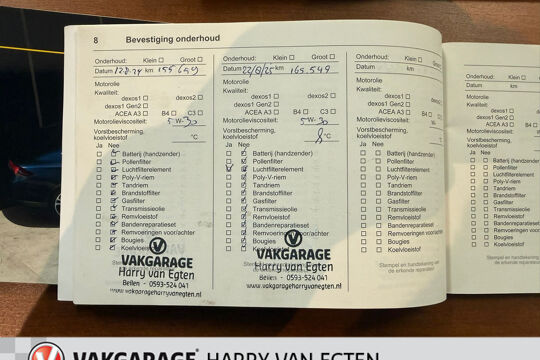 8 Bevestiging onderhoud
Onderhoud: Klein ☐ Groot ☐
Datum 12.8.24 km 155659
Motorolie
Kwaliteit:
dexos1 ☐ dexos2 ☐
dexos1 Gen2 ☐
ACEA A3 ☐ B4 ☐ C3 ☐
Motorolieviscositeit: 5W-30
Vorstbescherming,
koelvloeistof °C
Ja Nee
Batterij (handzender)
Pollenfilter
Luchtfilterelement
Poly-V-riem
Tandriem
Brandstoffilter
Gasfilter
Transmissieolie
Remvloeistof
Bandenreparatieset
Remvoeringen voor/achter
Bougies
Koelvloeistof
VAKGARAGE
Harry van Egten
Beilen - 0593-524 041
www.vakgarageharryvanegten.nl
Onderhoud: Klein ☐ Groot ☐
Datum 22/8/25 km 165.549
Motorolie
Kwaliteit:
dexos1 ☐ dexos2 ☐
dexos1 Gen2 ☐
ACEA A3 ☐ B4 ☐ C3 ☐
Motorolieviscositeit: 5W-30
Vorstbescherming,
koelvloeistof °C
Ja Nee
Batterij (handzender)
Pollenfilter
Luchtfilterelement
Poly-V-riem
Tandriem
Brandstoffilter
Gasfilter
Transmissieolie
Remvloeistof
Bandenreparatieset
Remvoeringen voor/achter
Bougies
Koelvloeistof
VAKGARAGE
Harry van Egten
Beilen - 0593-524 041
www.vakgarageharryvanegten.nl
Onderhoud: Klein ☐
Datum km
Motorolie
Kwaliteit:
dexos1 ☐
dexos1 Gen2 ☐
ACEA A3 ☐ B4 ☐
Motorolieviscositeit:
Vorstbescherming,
koelvloeistof
Ja Nee
Batterij (handzender)
Pollenfilter
Luchtfilterelement
Poly-V-riem
Tandriem
Brandstoffilter
Gasfilter
Transmissieolie
Remvloeistof
Bandenreparatieset
Remvoeringen voor/achter
Bougies
Koelvloeistof
Stempel en handtekening van
de erkende reparateur
Onderhoud: Klein ☐
Datum km
Motorolie
Kwaliteit:
dexos1 ☐
dexos1 Gen2 ☐
ACEA A3 ☐ B4 ☐
Motorolieviscositeit:
Vorstbescherming,
koelvloeistof
Ja Nee
Batterij (handzender)
Pollenfilter
Luchtfilterelement
Poly-V-riem
Tandriem
Brandstoffilter
Gasfilter
Transmissieolie
Remvloeistof
Bandenreparatieset
Bougies
Koelvloeistof
VAKGARAGE HARRY VAN EGTEN